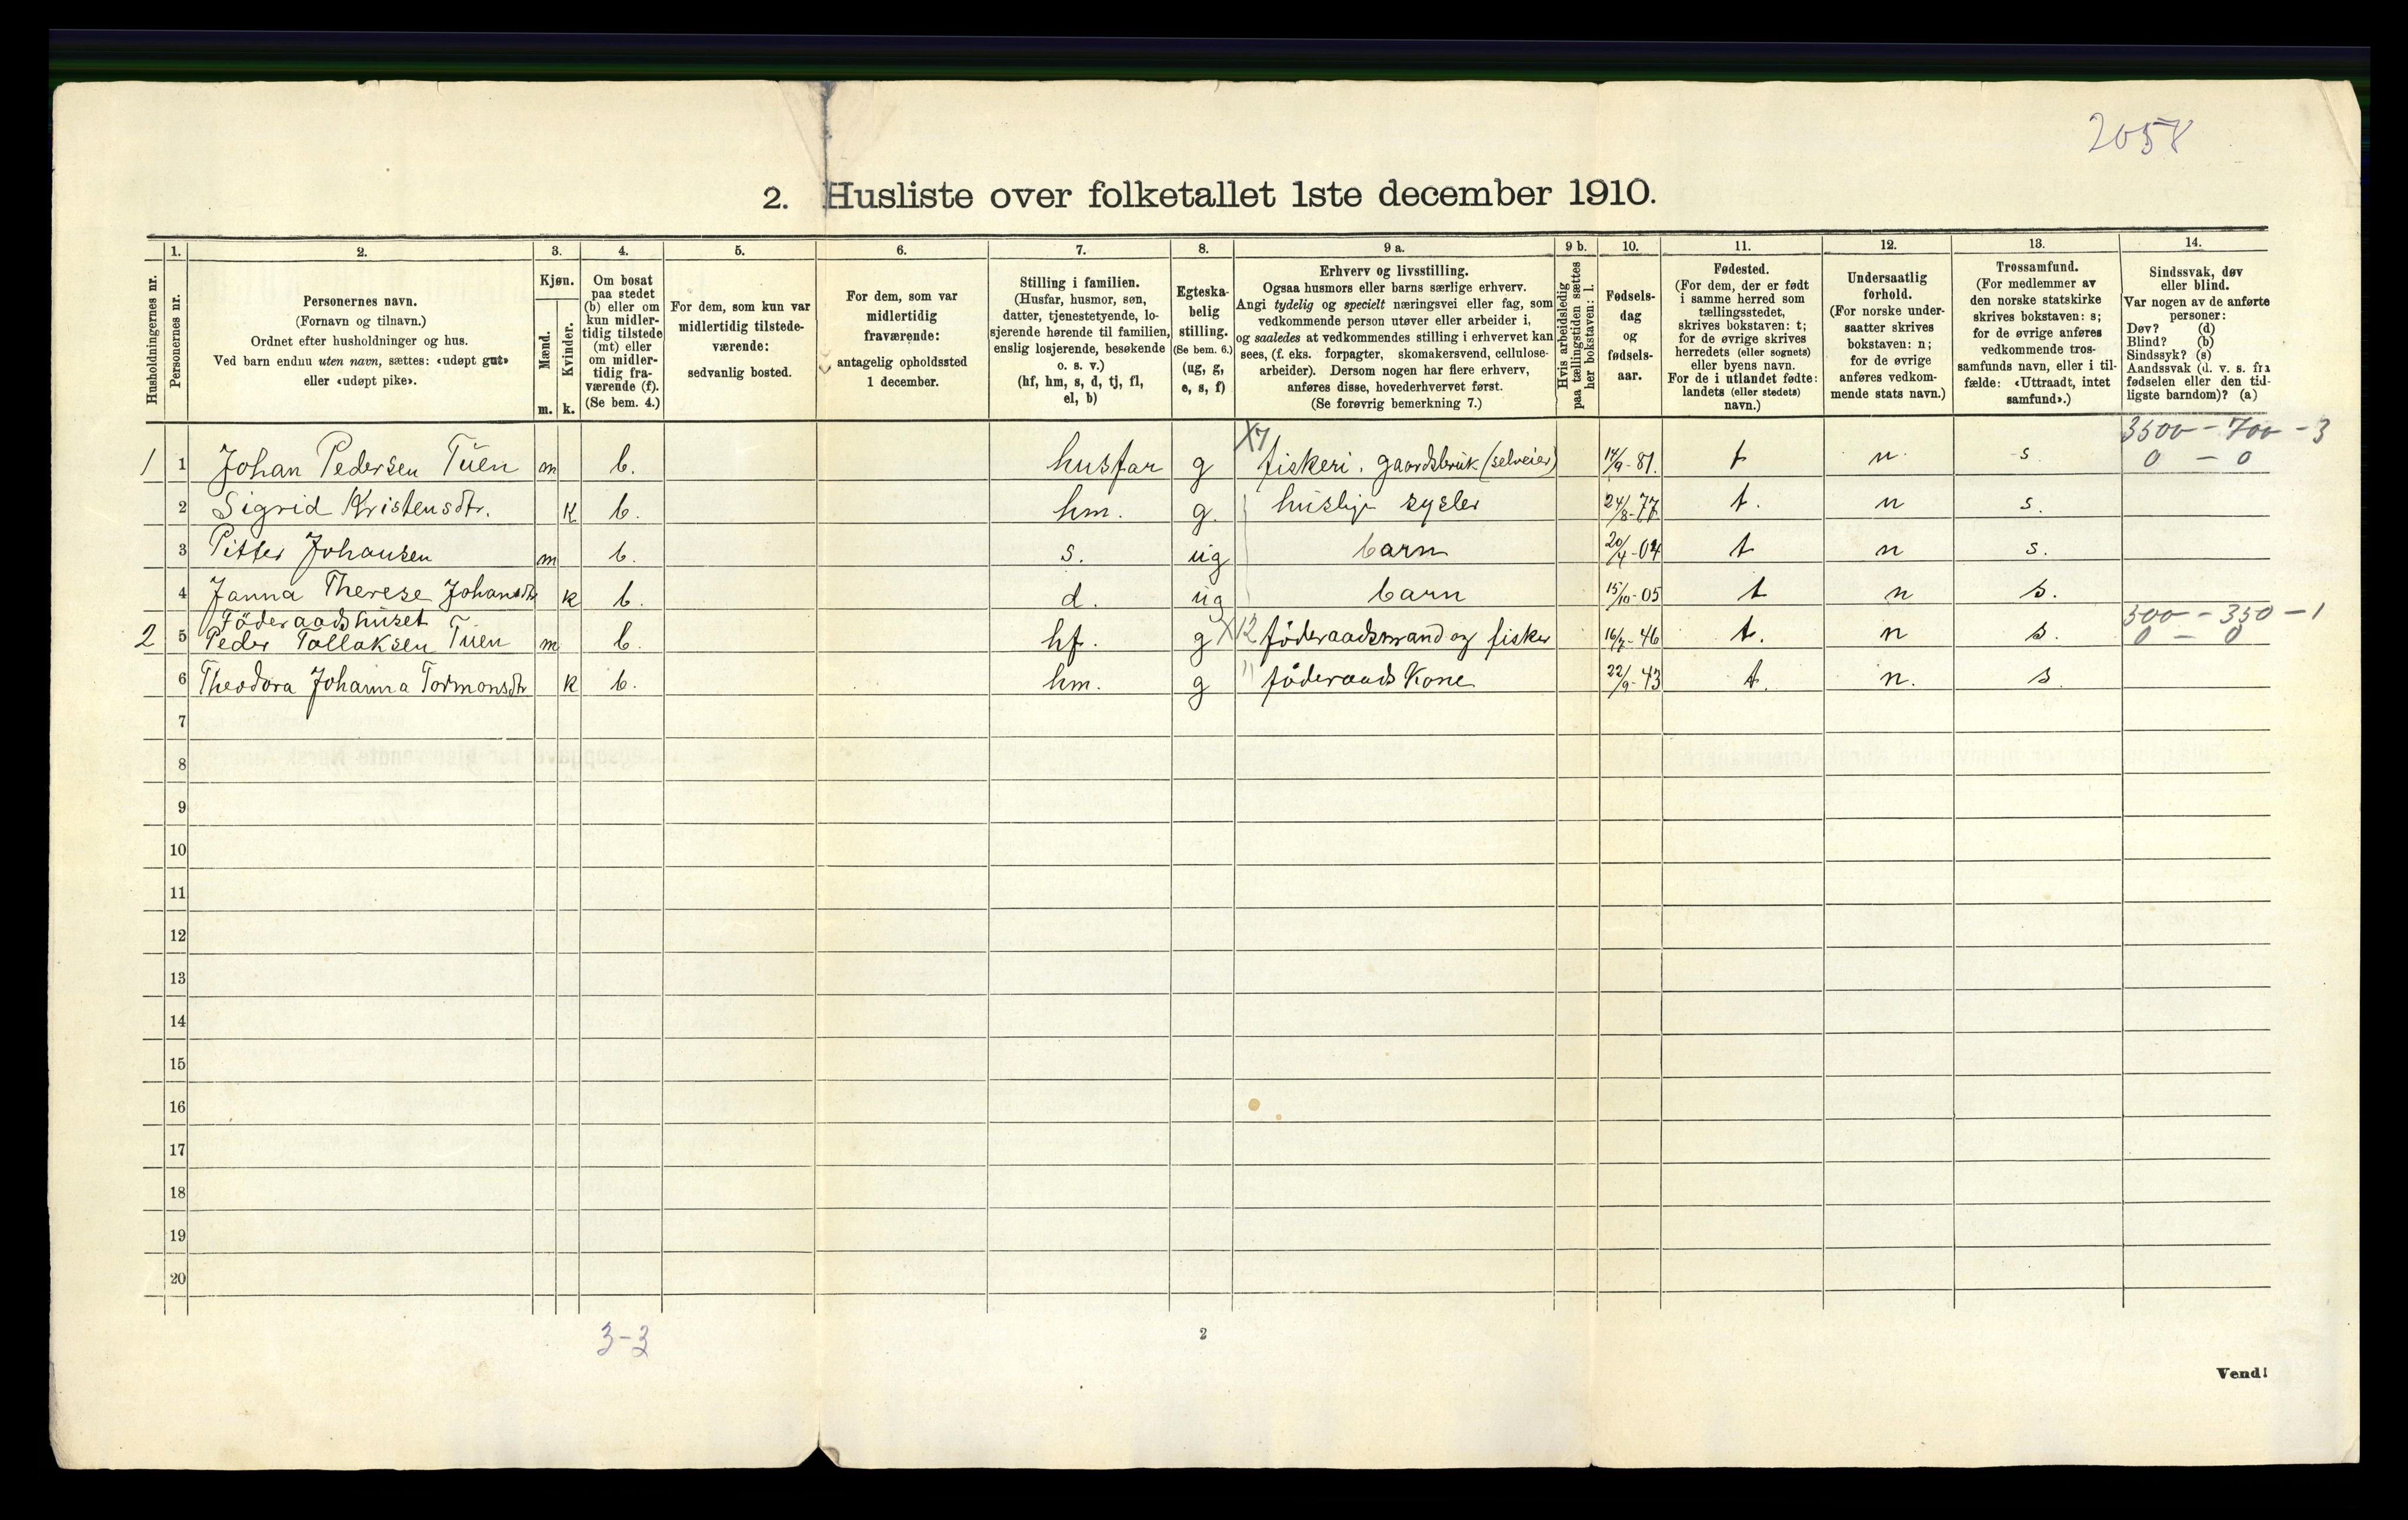 2058
2. Husliste over folketallet 1ste december 1910.
Husholdningernes nr.
1.
Personernes nr.
2.
Personernes navn.
(Fornavn og tilnavn.)
Ordnet efter husholdninger og hus.
Ved barn endnu uten navn, sættes: «udøpt gut»
eller «udøpt pike».
3.
Kjøn.
Mænd.
Kvinder.
m. k.
4.
Om bosat
paa stedet
(b) eller om
kun midler-
tidig tilstede
(mt) eller
om midler-
tidig fra-
værende (f).
(Se bem. 4.)
5.
For dem, som kun var
midlertidig tilstede-
værende:
sedvanlig bosted.
6.
For dem, som var
midlertidig
fraværende:
antagelig opholdssted
1 december.
7.
Stilling i familien.
(Husfar, husmor, søn,
datter, tjenestetyende, lo-
sjerende hørende til familien,
enslig losjerende, besøkende
o. s. v.)
(hf, hm, s, d, tj, fl,
el, b)
8.
Egteska-
belig
stilling.
(Se bem. 6.)
(ug, g,
e, s, f)
9 a.
Erhverv og livsstilling.
Ogsaa husmors eller barns særlige erhverv.
Angi tydelig og specielt næringsvei eller fag, som
vedkommende person utøver eller arbeider i,
og saaledes at vedkommendes stilling i erhvervet kan
sees, (f. eks. forpagter, skomakersvend, cellulose-
arbeider). Dersom nogen har flere erhverv,
anføres disse, hovederhvervet først.
(Se forøvrig bemerkning 7.)
9 b.
Hvis arbeidsledig
paa tællingstiden sættes
her bokstaven: l.
10.
Fødsels-
dag
og
fødsels-
aar.
11.
Fødested.
(For dem, der er født
i samme herred som
tællingsstedet,
skrives bokstaven: t;
for de øvrige skrives
herredets (eller sognets)
eller byens navn.
For de i utlandet fødte:
landets (eller stedets)
navn.)
12.
Undersaatlig
forhold.
(For norske under-
saatter skrives
bokstaven: n;
for de øvrige
anføres vedkom-
mende stats navn.)
13.
Trossamfund.
(For medlemmer av
den norske statskirke
skrives bokstaven: s;
for de øvrige anføres
vedkommende tros-
samfunds navn, eller i til-
fælde: «Uttraadt, intet
samfund».)
14.
Sindssvak, døv
eller blind.
Var nogen av de anførte
personer:
Døv? (d)
Blind? (b)
Sindssyk? (s)
Aandssvak (d. v. s. fra
fødselen eller den tid-
ligste barndom)? (a)
X7 3500 - 700 - 3
1 1 Johan Pedersen Tuen m b. husfar g fiskeri. gaardsbruk (selveier) 14/9-81. t n. s. 0 - 0
2 Sigrid Kristensdtr. k b. hm. g. huslige sysler 24/8-77 t. n s.
3 Pitter Johansen m b. s. ug barn 20/4-04 t n s.
4 Janna Therese Johansdtr k b. d. ug barn 15/10-05 t n s.
Föderaadshuset 500 - 350 - 1
2 5 Peder Tollaksen Tuen m b. hf. g X12 föderaadsmand og fisker 16/7-46 t. n s. 0 - 0
6 Theodora Johanna Tormonsdtr k b. hm. g " föderaads Kone 22/9-43 t. n. s.
7
8
9
10
11
12
13
14
15
16
17
18
19
20
3-3
2
Vend!